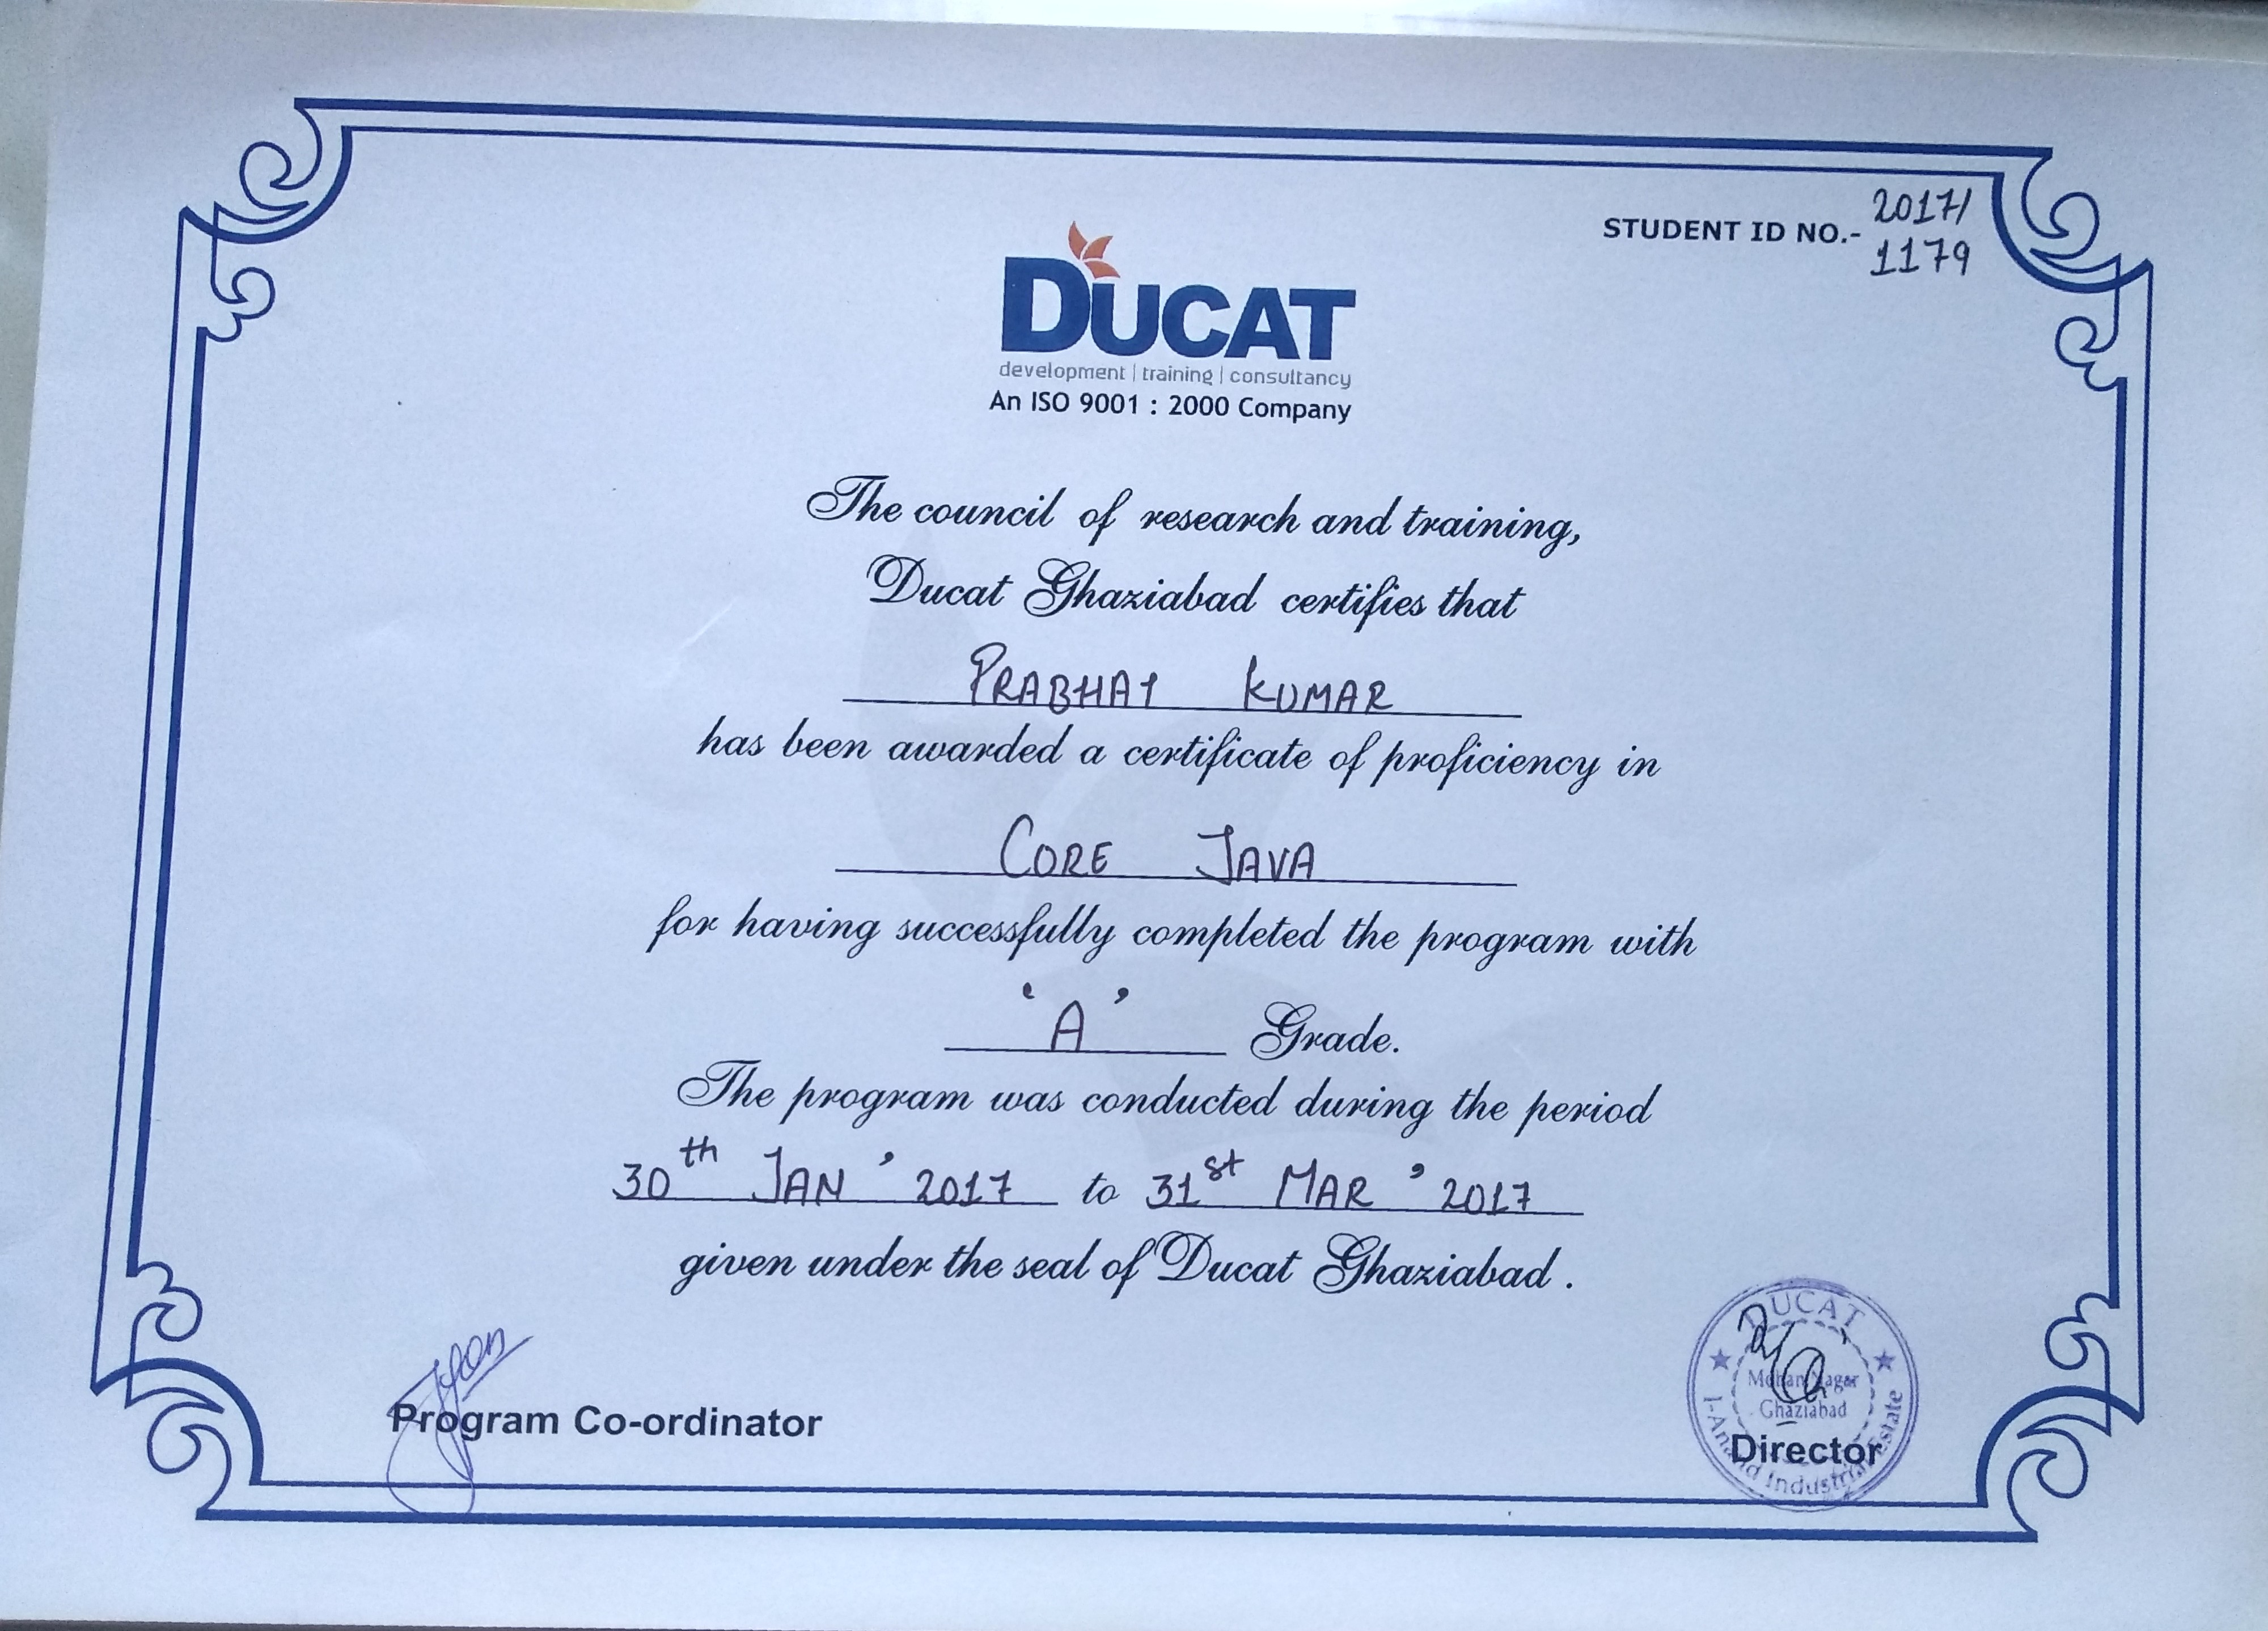 STUDENT ID NO.- 2017/
1179
DUCAT
development | training | consultancy
An ISO 9001 : 2000 Company
The council of research and training,
Ducat Ghaziabad certifies that
PRABHAT KUMAR
has been awarded a certificate of proficiency in
CORE JAVA
for having successfully completed the program with
'A' Grade.
The program was conducted during the period
30th JAN ' 2017 to 31st MAR ' 2017
given under the seal of Ducat Ghaziabad .
Program Co-ordinator
DUCAT
Mohan Nagar
Ghaziabad
Director
Industrial Estate